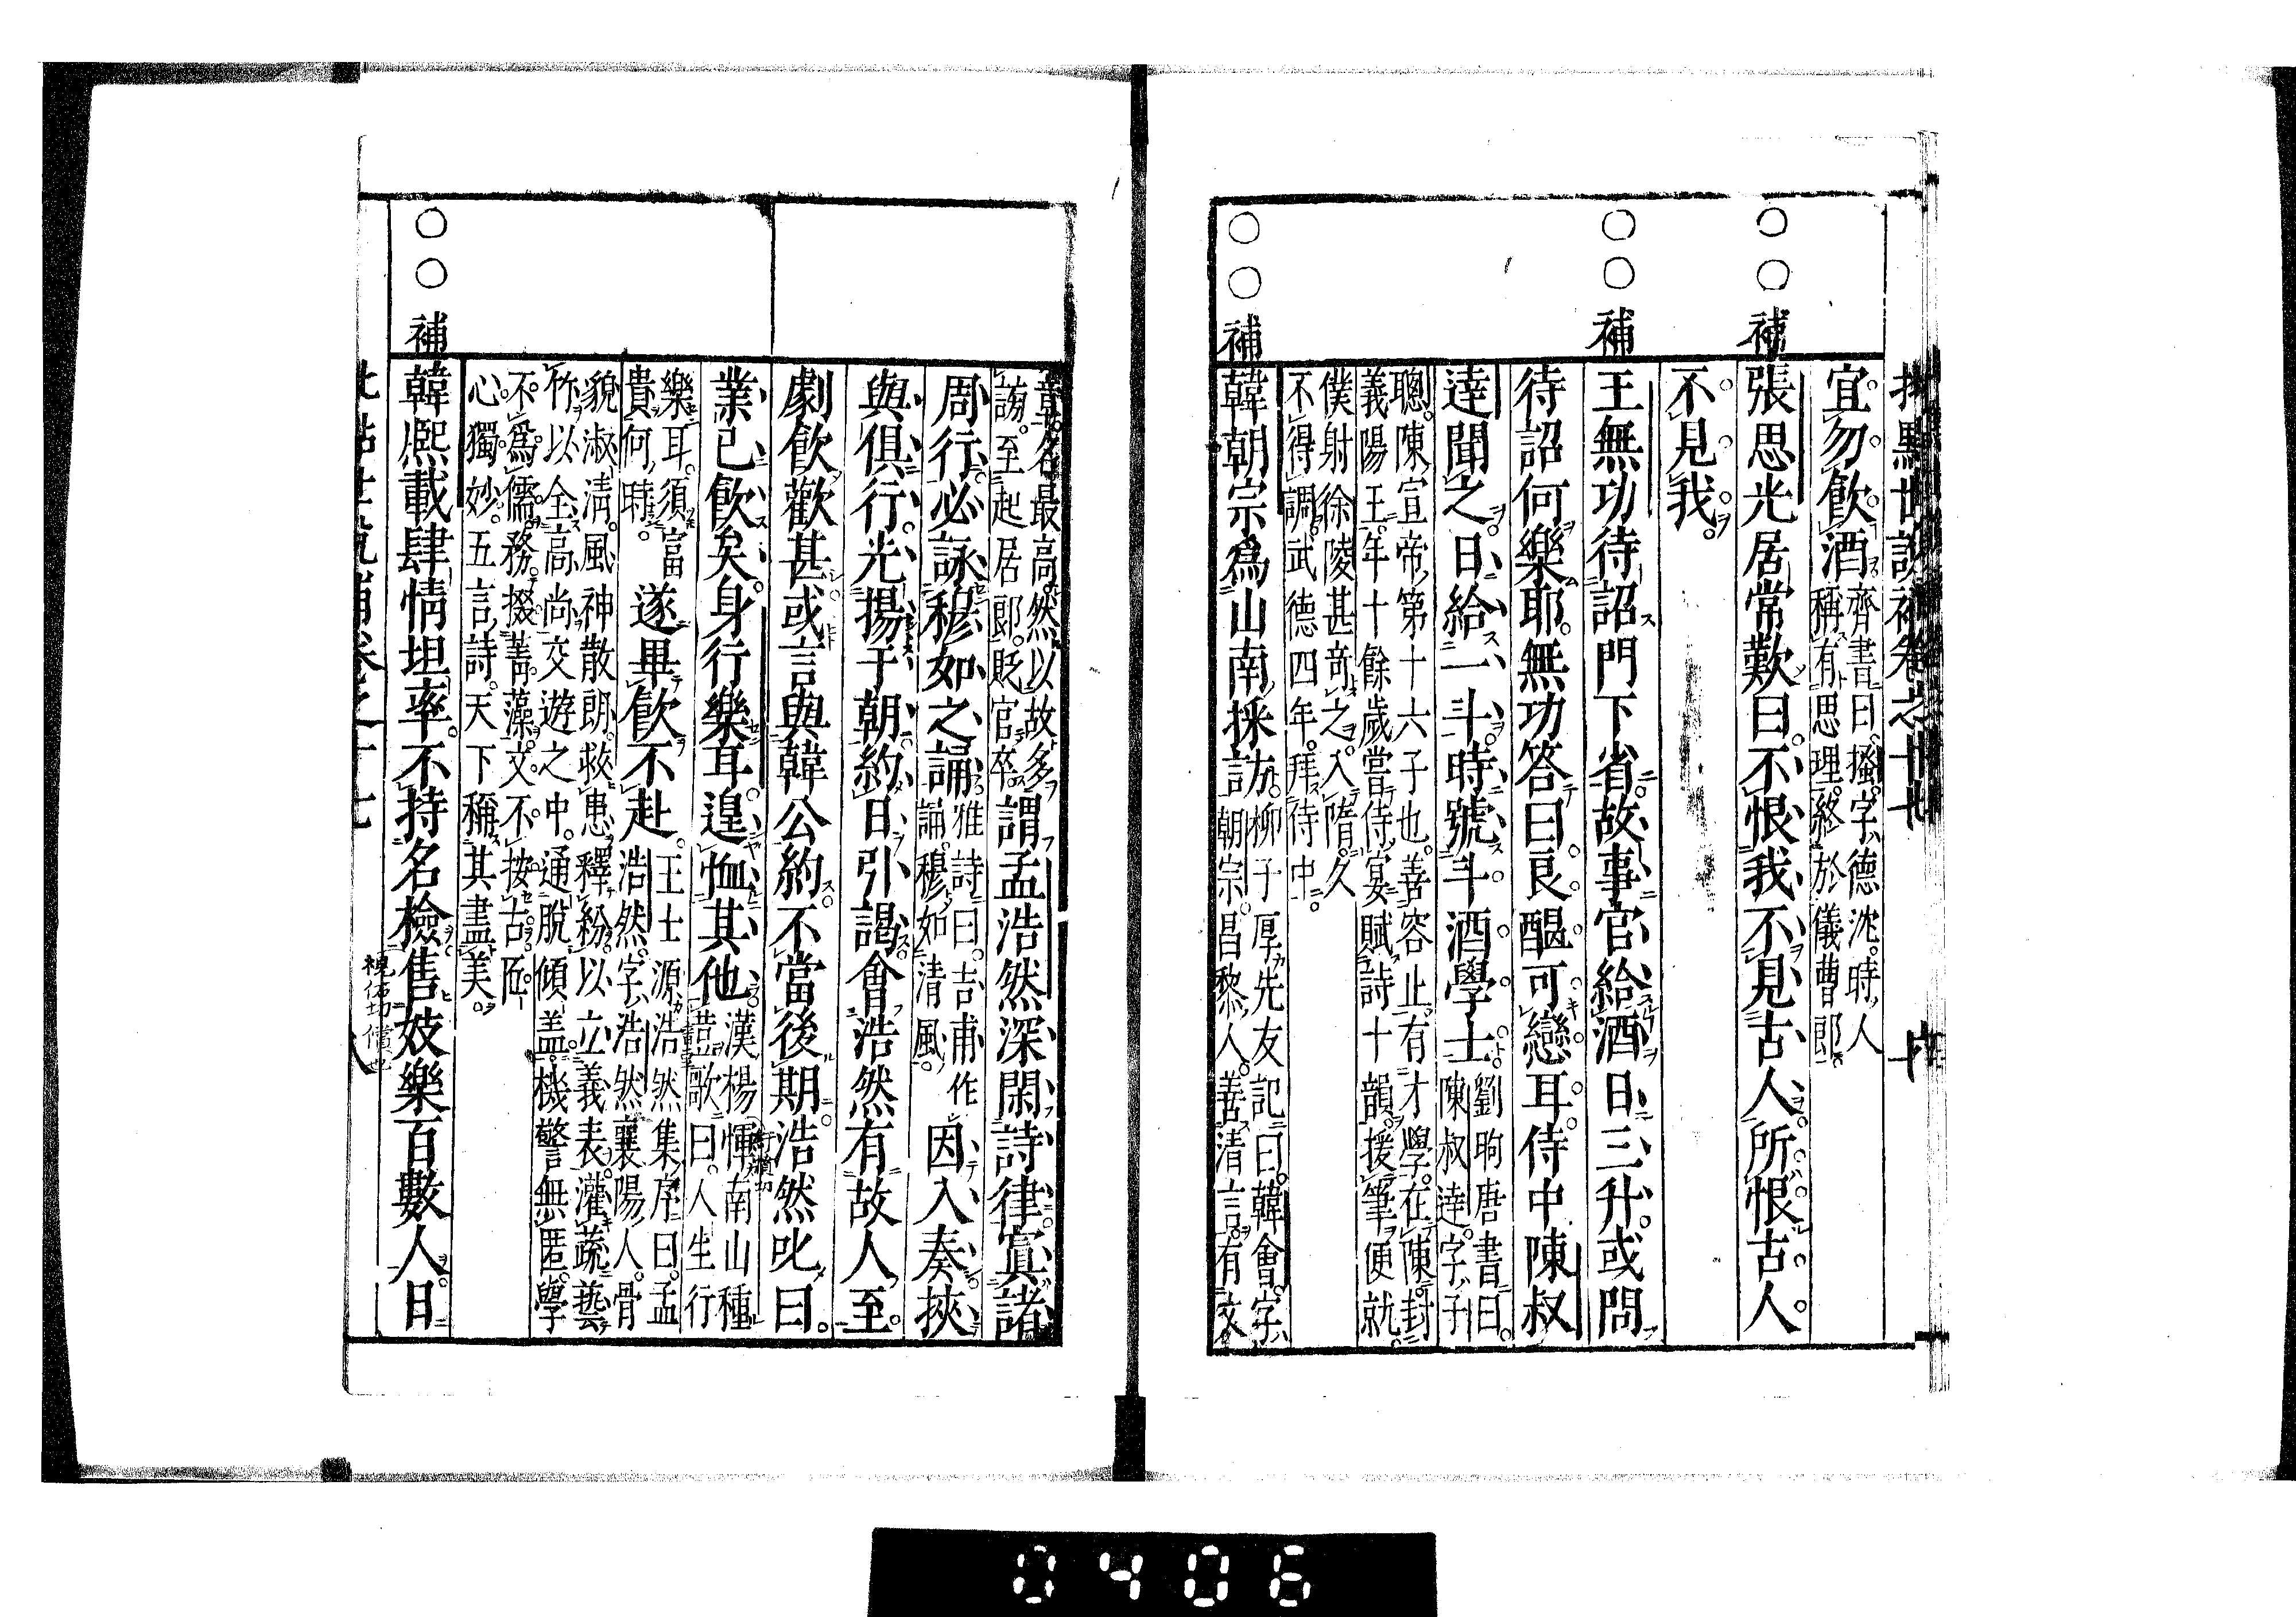 批點世說補卷之十七
宜勿飲酒
齊書曰搔字德沈時人
稱有思理終於儀曹郎
○○補
張思光居常歎曰不恨我不見古人所恨古人
不見我
○○補
王無功待詔門下省故事官給酒日三升或問
待詔何樂耶無功答曰良醞可戀耳侍中陳叔
達聞之日給一斗時號斗酒學士
劉昫唐書曰
陳叔達字子
聰陳宣帝第十六子也善容止有才學在陳封
義陽王年十餘歲嘗侍宴賦詩十韻援筆便就
僕射徐陵甚奇之入隋久
不得調武德四年拜侍中
○○補
韓朝宗爲山南採訪
柳子厚先友記曰韓會字
朝宗昌黎人善清言有文
章名最高然以故多
謗至起居郎貶官卒
謂孟浩然深閑詩律寘諸
周行必詠穆如之誦
雅詩曰吉甫作
誦穆如清風
因入奏挾
與俱行光揚于朝約日引謁會浩然有故人至
劇飲歡甚或言與韓公約不當後期浩然叱曰
業已飲矣身行樂耳遑恤其他
漢楊惲南山種
荳歌曰人生行
樂耳須富
貴何時
遂畢飲不赴
王士源浩然集序曰孟
浩然字浩然襄陽人骨
貌淑清風神散朗救患釋紛以立義表灌蔬藝
竹以全高尚交遊之中通脫傾蓋機警無匿學
不爲儒務掇菁藻文不按古匠
心獨妙五言詩天下稱其盡美
○○補
韓熙載肆情坦率不持名檢售妓樂百數人日
卷之十七
八
0406